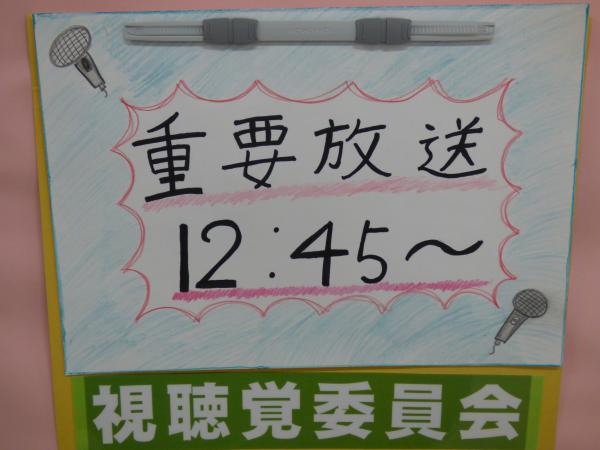 重要放送
12:45～
視聴覚委員会